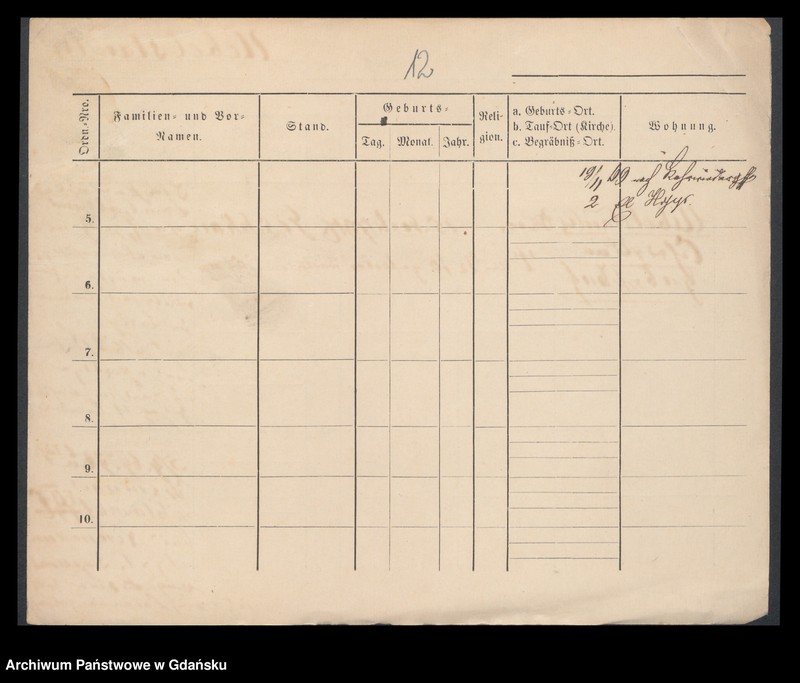 12
Ordn.-Nro.
Familien- und Vor-
Namen.
Stand.
Geburts-
Tag.
Monat.
Jahr.
Reli-
gion.
a. Geburts-Ort.
b. Tauf-Ort (Kirche)
c. Begräbniß-Ort.
Wohnung.
19/11 69 nach
2
5.
6.
7.
8.
9.
10.
Archiwum Państwowe w Gdańsku